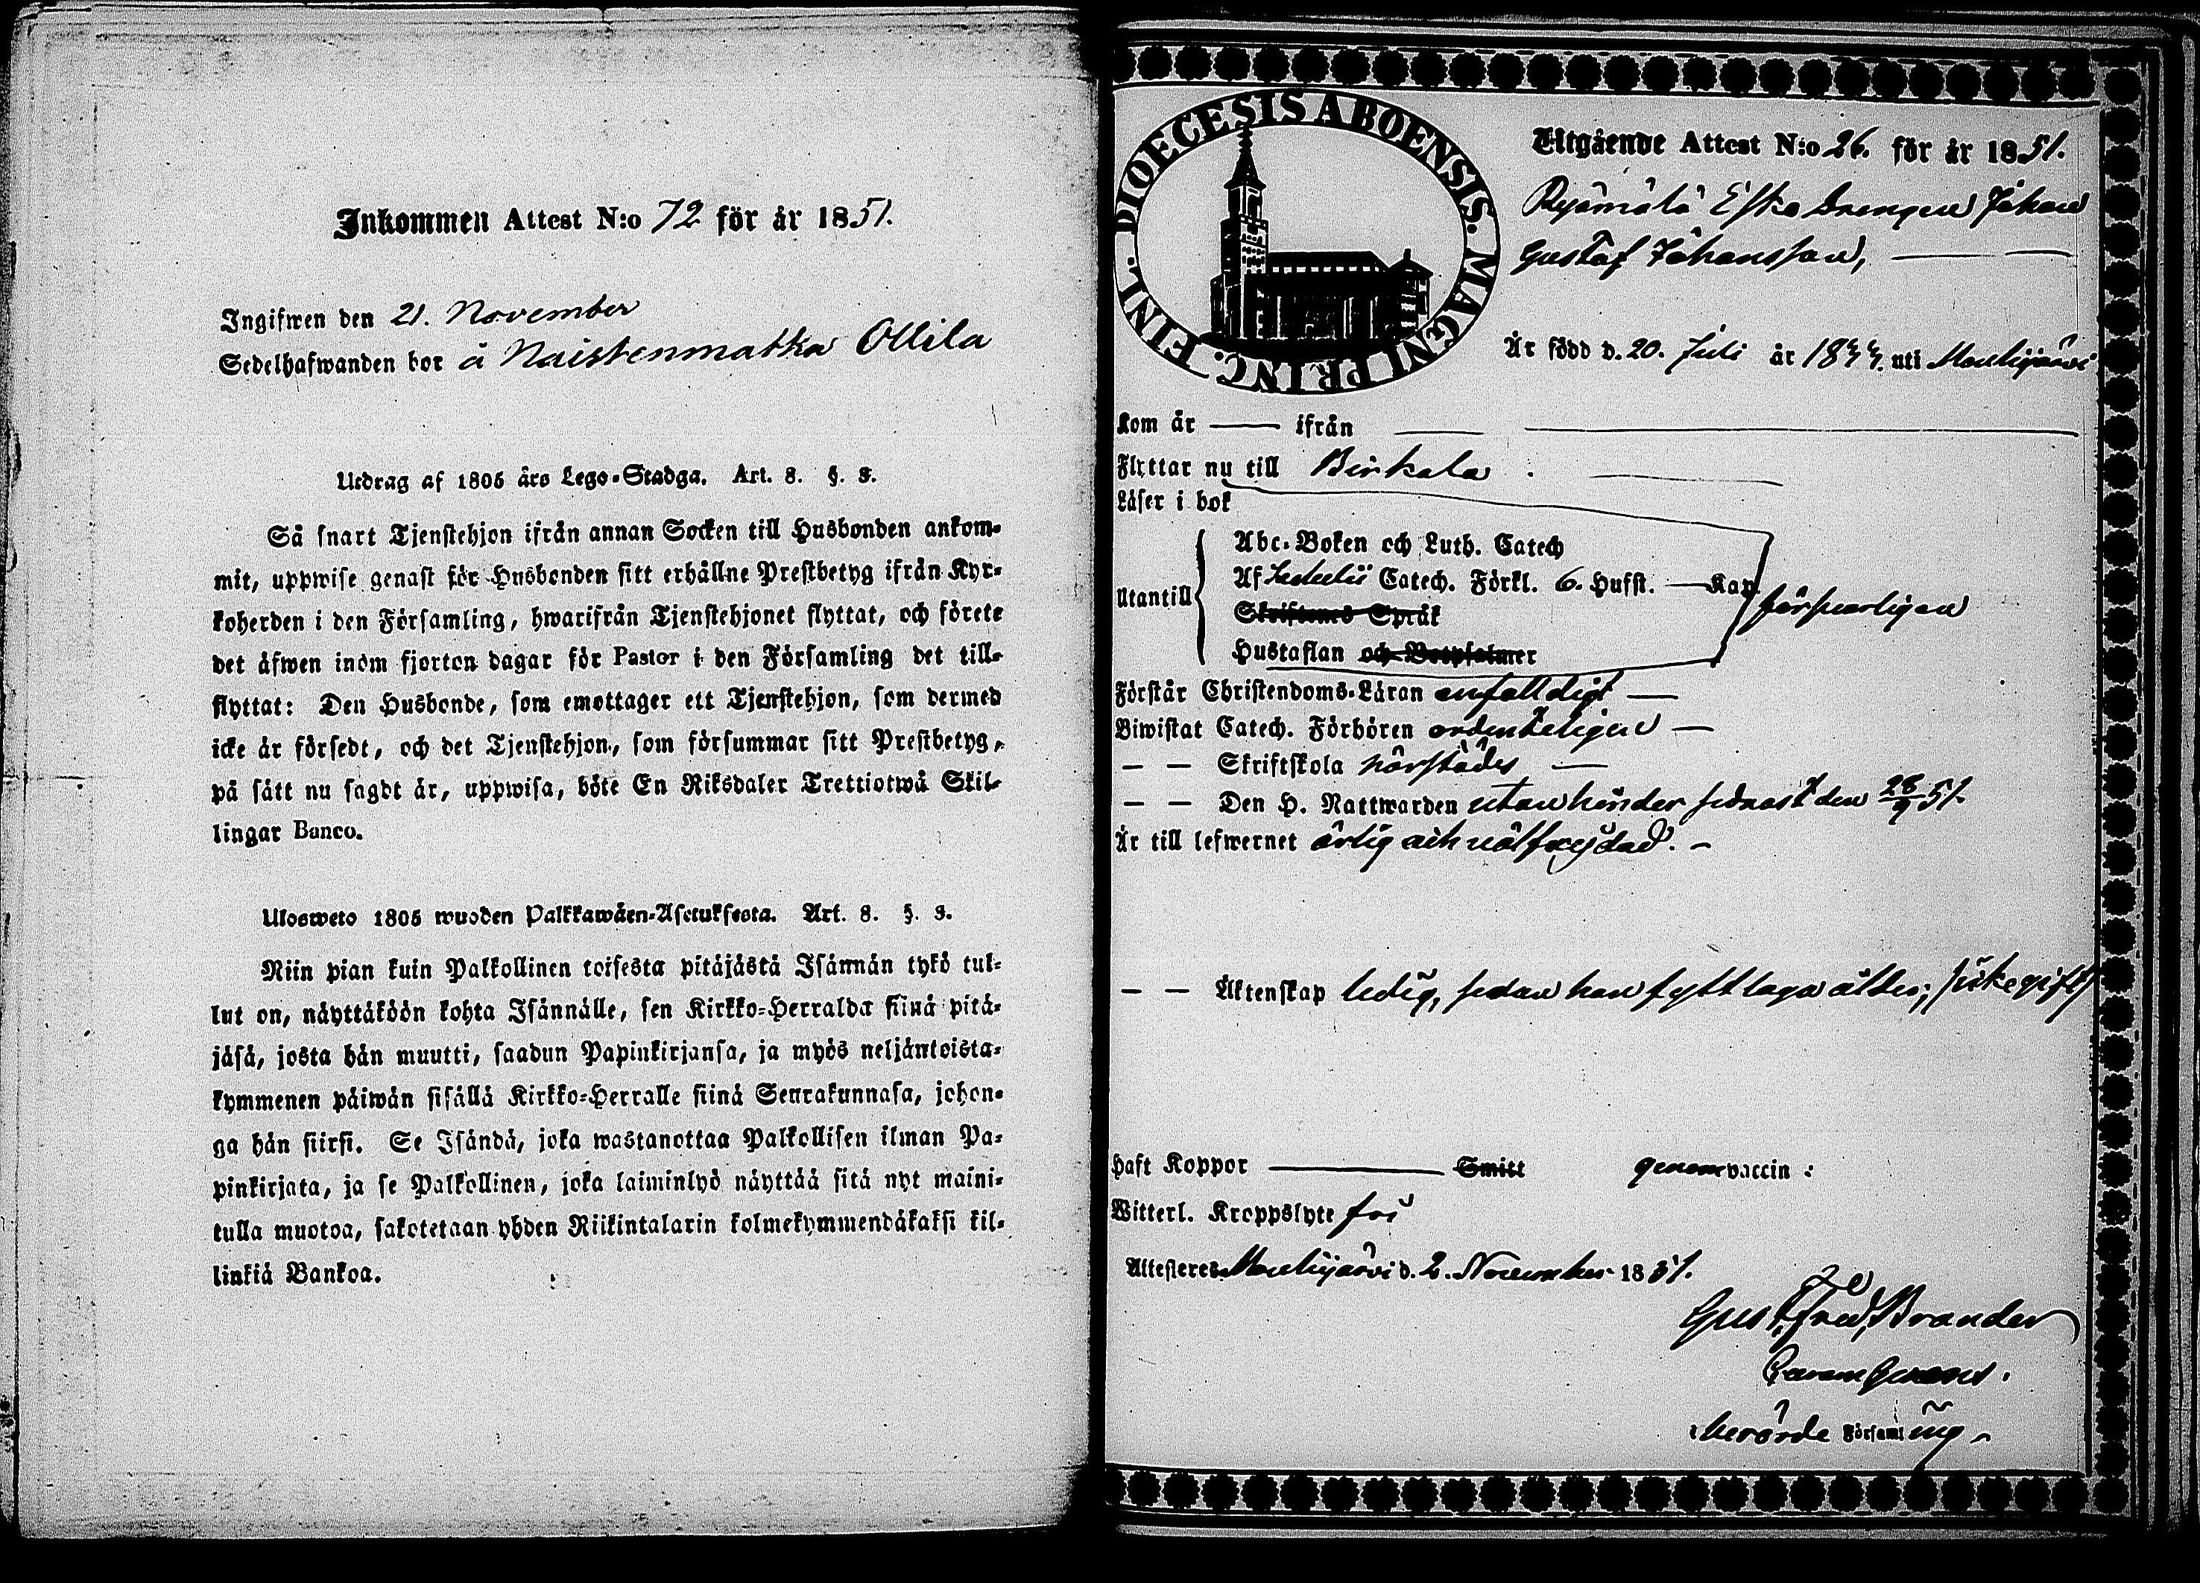 Inkommen Attest N:o 72 för år 1851.
Ingifwen den 21. November
Sedelhafwanden bor å Naistenmatka Ollila
Utdrag af 1805 års Lego-Stadga. Art. 8. §. 3.
Så snart Tjenstehjon ifrån annan Socken till Husbonden ankom-
mit, uppwise genast för Husbonden sitt erhållne Prestbetyg ifrån Kyr-
koherden i den Församling, hwarifrån Tjenstehjonet flyttat, och förete
det äfwen inom fjorton dagar för Pastor i den Församling det till-
flyttat: Den Husbonde, som emottager ett Tjenstehjon, som dermed
icke är försedt, och det Tjenstehjon, som försummar sitt Prestbetyg,
på sätt nu sagdt är, uppwisa, böte En Riksdaler Trettiotwå Skil-
lingar Banco.
Ulosweto 1805 wuoden Palkkawäen-Asetuksesta. Art. 8. §. 3.
Niin pian kuin Palkollinen toisesta pitäjästä Isännän tykö tul-
lut on, näyttäköön kohta Isännälle, sen Kirkko-Herralda siinä pitä-
jäsä, josta hän muutti, saadun Papinkirjansa, ja myös neljäntoista-
kymmenen päiwän sisällä Kirkko-Herralle siinä Seurakunnasa, johon-
ga hän siirsi. Se Isändä, joka wastanottaa Palkollisen ilman Pa-
pinkirjata, ja se Palkollinen, joka laiminlyö näyttää sitä nyt maini-
tulla muotoa, sakotetaan yhden Riikintalarin kolmekymmendäkaksi kil-
linkiä Bankoa.
DIOECESIS ABOENSIS. MAGNI PRINC. FINL.
Utgående Attest N:o 26. för år 1851.
Eske Drengen Johan
Gustaf Johansson,
Är född d. 20. Juli år 1833. uti Mouhijärvi
Kom år ifrån
Flyttar nu till Birkala.
Läser i bok
Abc-Boken och Luth. Catech
Utantill Af Catech. Förkl. 6. Hufst. Kap.
Skriftenes Språk
försvarligen
Hustaflan och Botpsalmer
Förstår Christendoms-Läran enfaldigt
Biwistat Catech. Förhören ordenteligen
— — Skriftskola
— — Den H. Nattwarden utan hinder sednast den 28/9 51.
Är till lefwernet ärlig och välfrejdad.
— — Äktenskap ledig, sedan han fyllt laga ålder,
Haft Koppor Smitt genom vaccin:
Witterl. Kroppslyte fri
Attesteres Mouhijärvi d. 2. November 1851.
Gust. Fred. Brander
berörde Församling